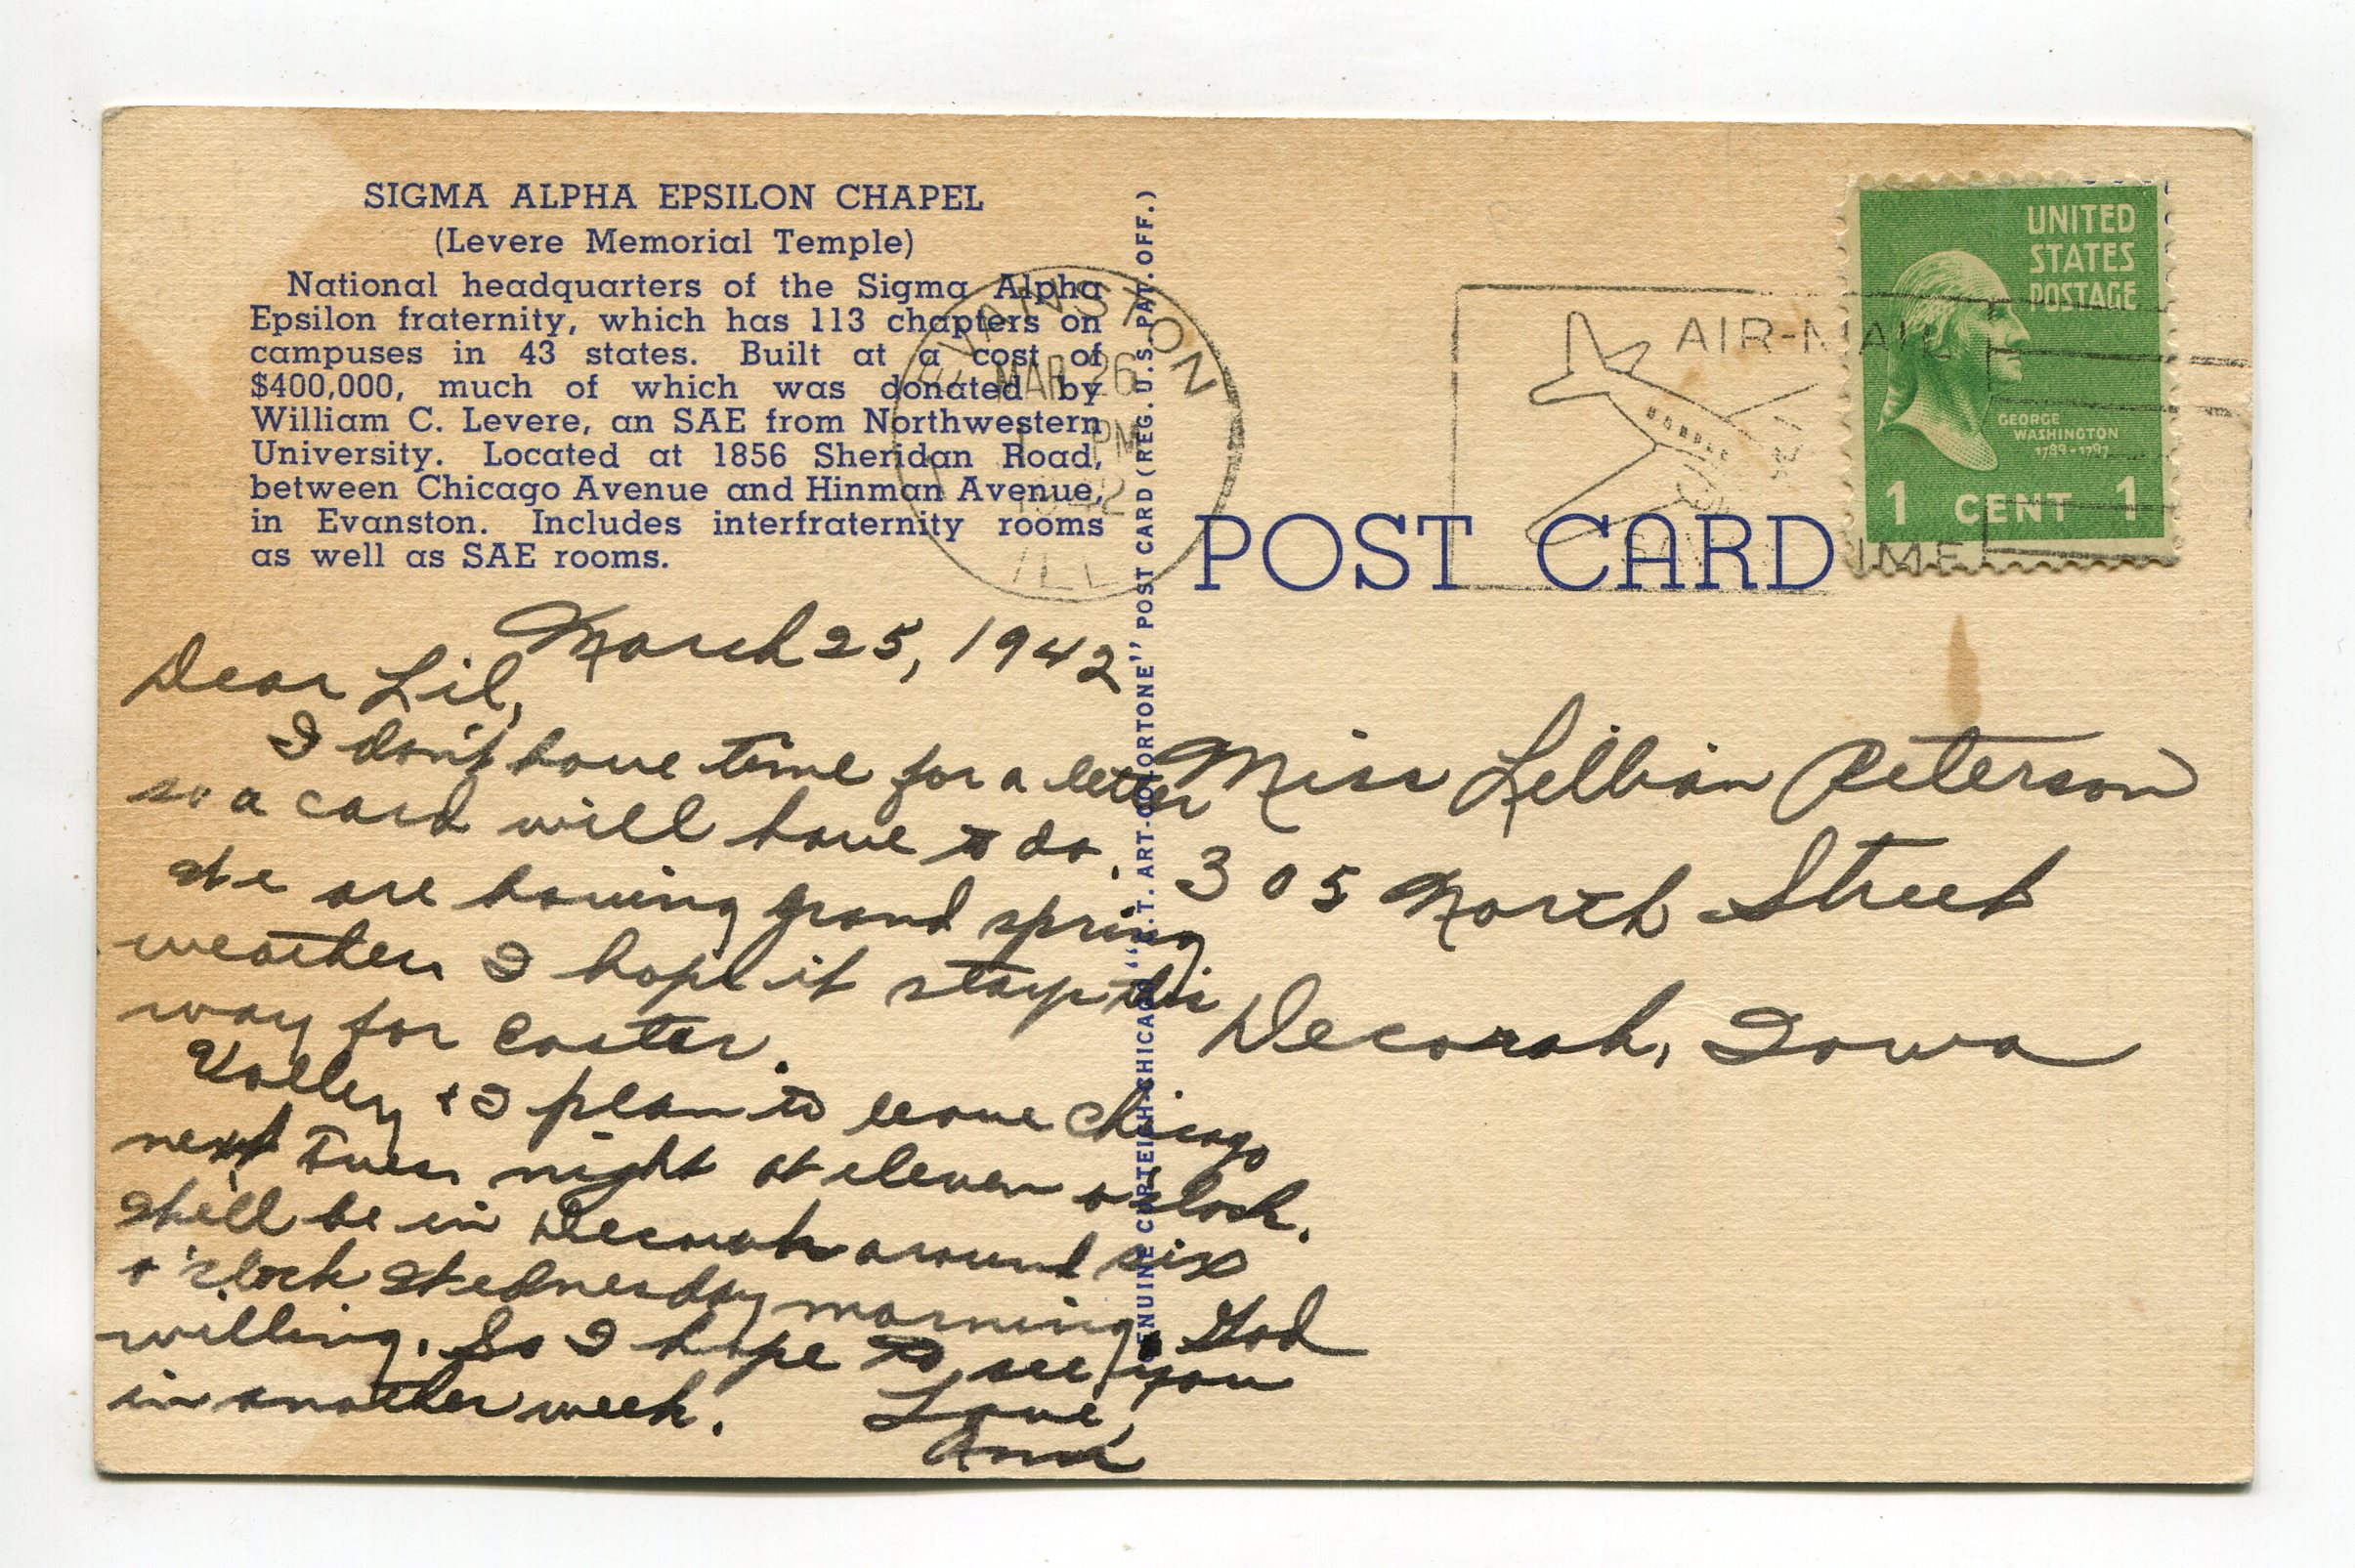 SIGMA ALPHA EPSILON CHAPEL
(Levere Memorial Temple)
National headquarters of the Sigma Alpha
Epsilon fraternity, which has 113 chapters on
campuses in 43 states. Built at a cost of
$400,000, much of which was donated by
William C. Levere, an SAE from Northwestern
University. Located at 1856 Sheridan Road,
between Chicago Avenue and Hinman Avenue,
in Evanston. Includes interfraternity rooms
as well as SAE rooms.
March 25, 1942
Dear Lil,
I don't have time for a letter
so a card will have to do.
We are having grand spring
weather. I hope it stays this
way for Easter.
Valley & I plan to leave Chicago
next Tues. night at eleven o'clock.
Shall be in Decorah around six
o'clock Wednesday morning, God
willing. So I hope to see you
in another week. Love,
GENUINE CURTEICH-CHICAGO "C.T. ART-COLORTONE" POST CARD (REG. U.S. PAT. OFF.)
EVANSTON
MAR 26
PM
1942
ILL
POST CARD
AIR-MAIL
SAVES TIME
UNITED
STATES
POSTAGE
GEORGE
WASHINGTON
1789-1797
1 CENT 1
Miss Lillian Peterson
305 North Street
Decorah, Iowa